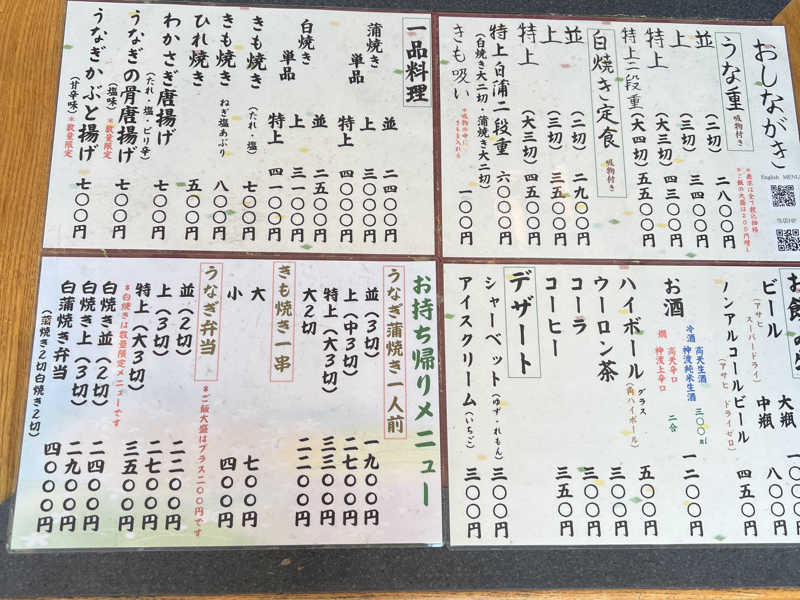 おしながき
English MENU
うな重 吸物付き
並 (二切) 二八〇〇円
上 (三切) 三四〇〇円
特上 (大三切) 四三〇〇円
特上二段重 (大四切) 五五〇〇円
白焼き定食 吸物付き
並 (二切) 二九〇〇円
上 (三切) 三五〇〇円
特上 (大三切) 四五〇〇円
特上白蒲二段重 六〇〇〇円
(白焼き大二切・蒲焼き大二切)
きも吸い 一〇〇円
一品料理
蒲焼き単品
並 二四〇〇円
上 三〇〇〇円
特上 四〇〇〇円
白焼き単品
並 二五〇〇円
上 三一〇〇円
特上 四一〇〇円
きも焼き (たれ・塩) 七〇〇円
きも焼き ねぎ塩あぶり 八〇〇円
ひれ焼き 五〇〇円
わかさぎ唐揚げ 七〇〇円
(たれ・塩・ピリ辛)
うなぎの骨唐揚げ 七〇〇円
(塩味) *数量限定
うなぎかぶと揚げ 七〇〇円
(甘辛味) *数量限定
ビール 大瓶
(アサヒスーパードライ) 中瓶 八〇〇円
ノンアルコールビール 四五〇円
(アサヒ ドライゼロ)
お酒
冷酒 高天生酒
神渡純米生酒 三〇〇ml 一二〇〇円
燗 高天辛口
神渡上辛口 二合
ハイボール グラス 五〇〇円
(角ハイボール)
ウーロン茶 三〇〇円
コーラ 三〇〇円
コーヒー 三五〇円
デザート
シャーベット (ゆず・れもん) 三〇〇円
アイスクリーム (いちご) 三〇〇円
お持ち帰りメニュー
うなぎ蒲焼き一人前
並 (3切) 一九〇〇円
上 (中3切) 二七〇〇円
特上 (大3切) 三三〇〇円
大2切 二二〇〇円
きも焼き一串
大 七〇〇円
小 四〇〇円
うなぎ弁当
*ご飯大盛はプラス二〇〇円です
並 (2切) 二二〇〇円
上 (3切) 二七〇〇円
特上 (大3切) 三五〇〇円
*白焼きは数量限定メニューです
白焼き並 (2切) 二四〇〇円
白焼き上 (3切) 二九〇〇円
白蒲焼き弁当 四〇〇〇円
(蒲焼き2切白焼き2切)